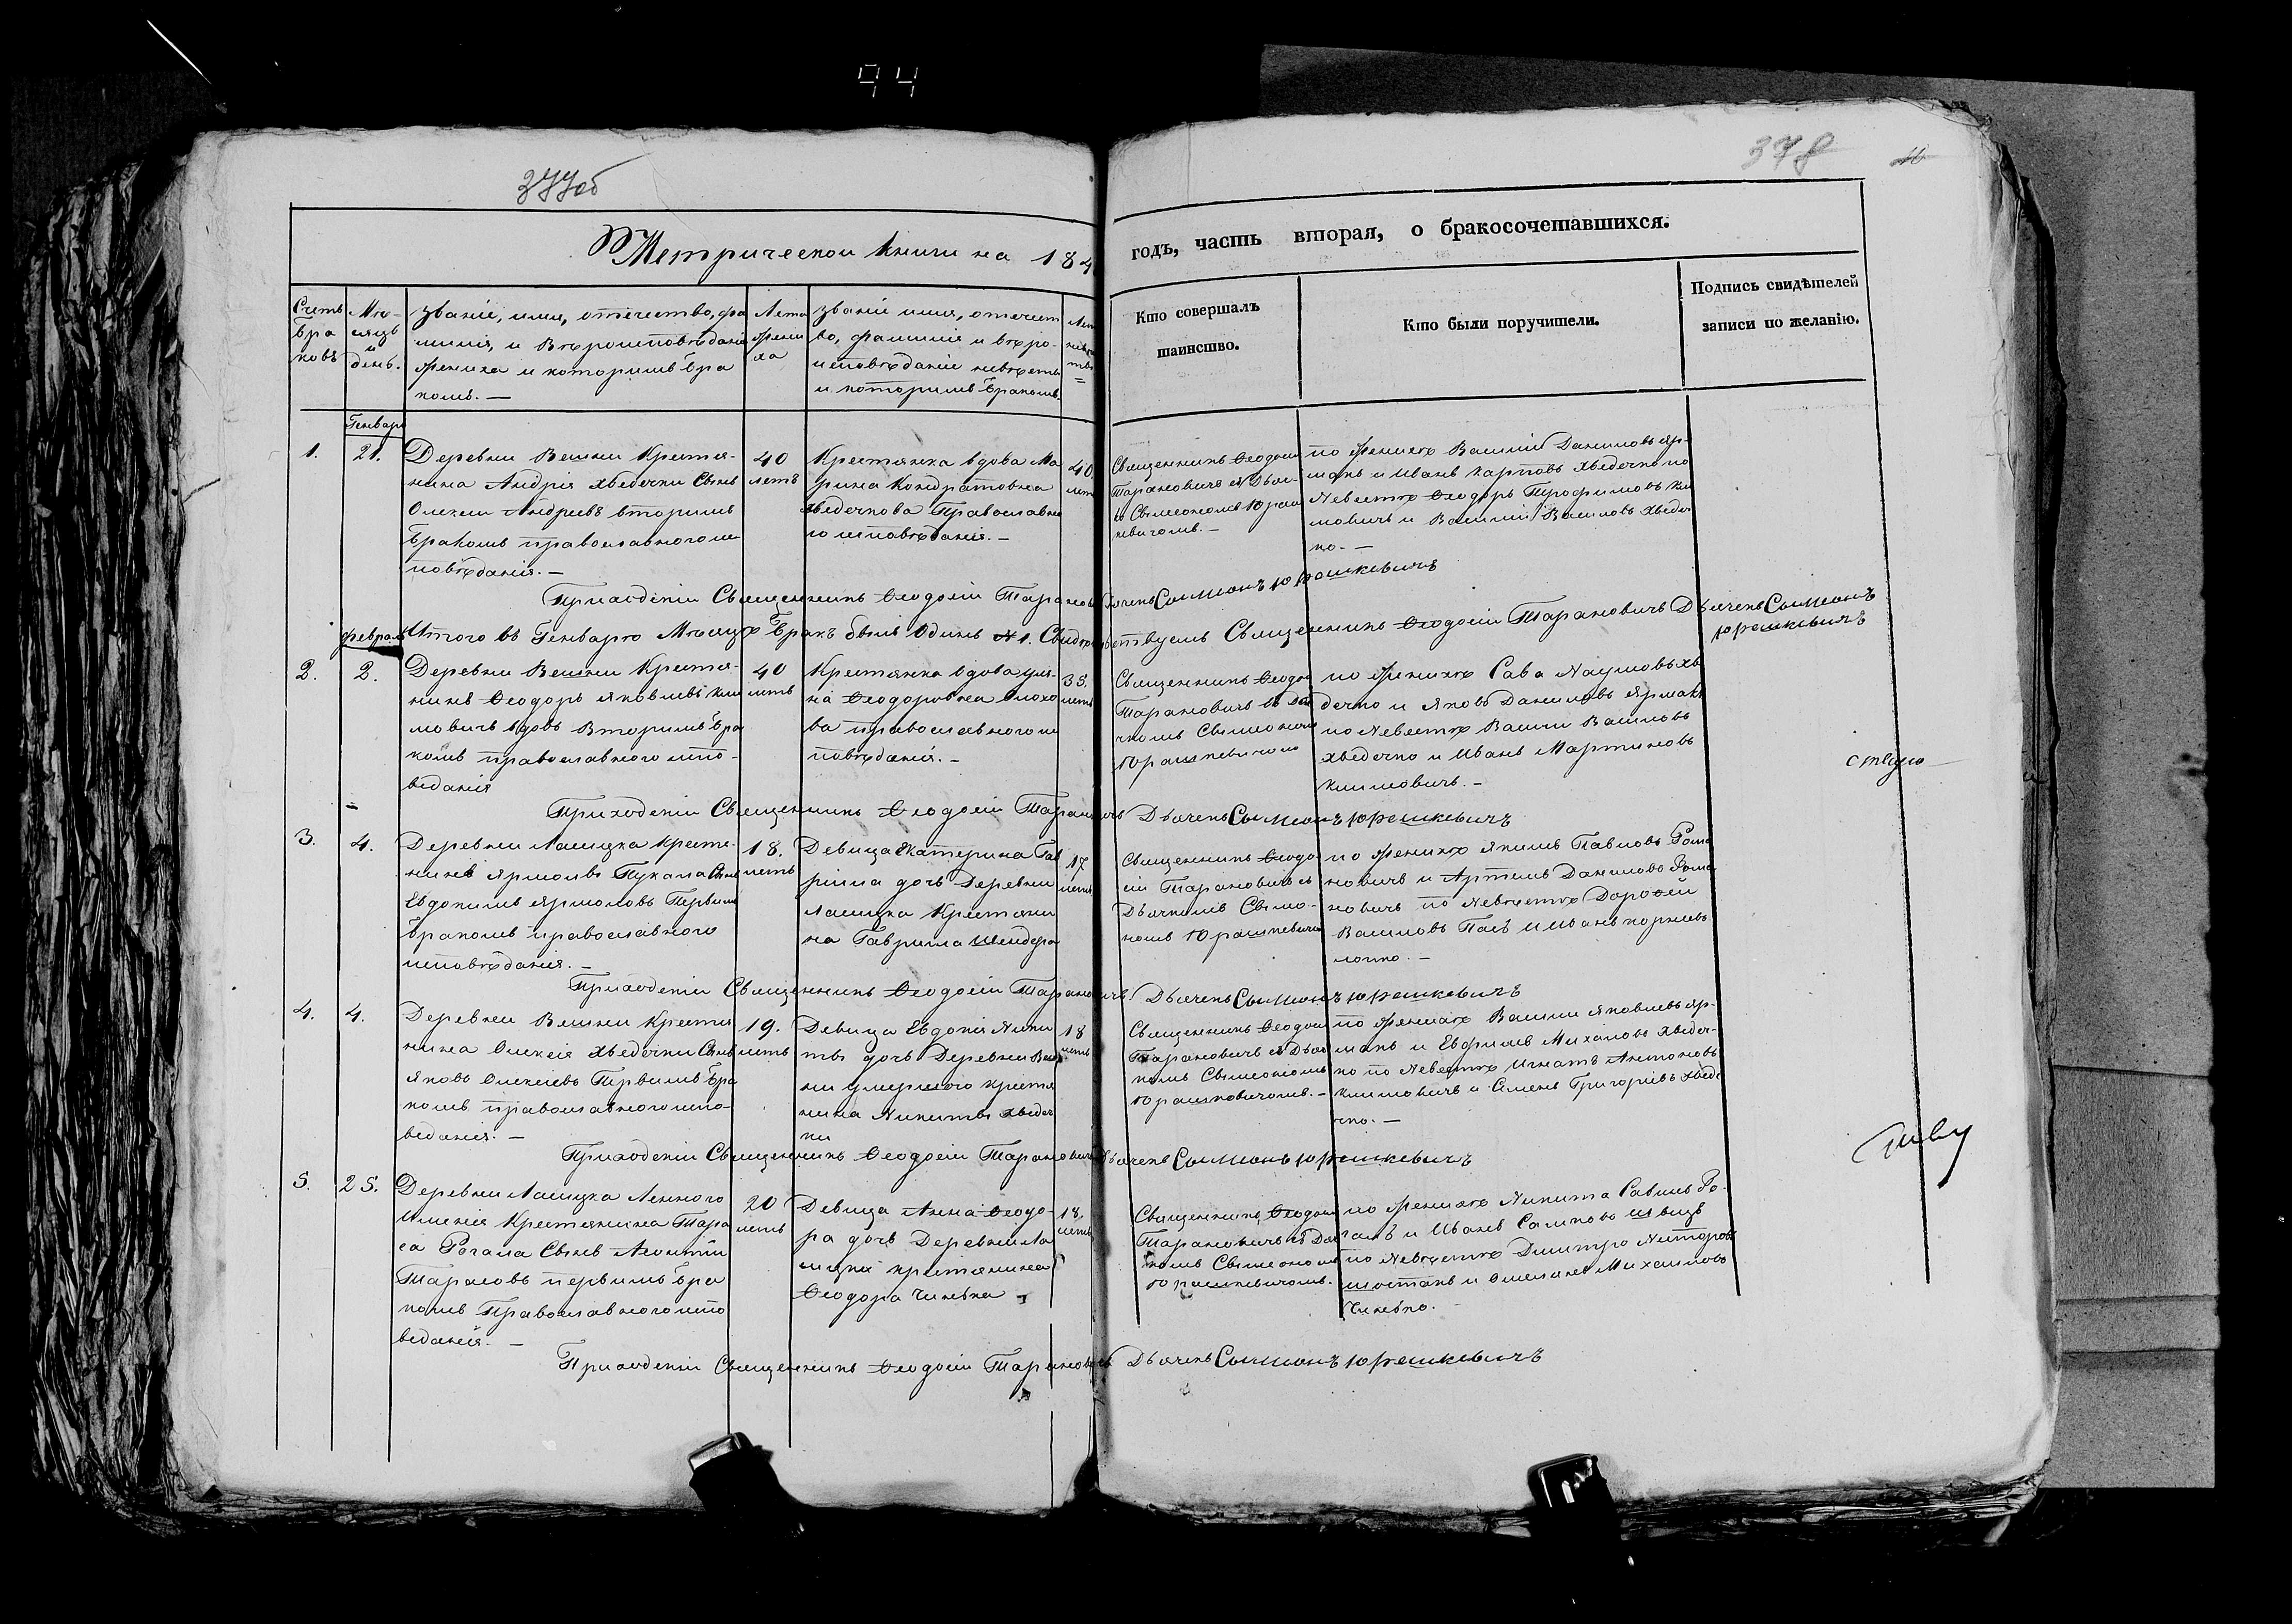 94
377об
378
Метрической книги на 184
годъ, часть вторая, о бракосочетавшихся.
Счетъ бра ковъ
Мѣ- сяцъ и день.
Званіе, имя, отечество, фа
милія, и вѣроисповѣданіе
жениха и которимъ бра
комъ. —
Лета жени ха
Званіе имя, отечест
во, фамилія и вѣро-
исповѣданіе невѣсты
и которимъ бракомъ.
Кто совершалъ
таинство.
Кто были поручители.
Подпись свидѣтелей
записи по желанію.
Генварь
1. 21.
Деревни Велини Крестя-
нина Андрія Хведечки Сынъ
Олексій Андреевъ вторимъ
бракомъ православного ис
повѣданія. —
40
летъ
Крестянка вдова Ма
рина Кондратовна
Хведечкова Православно
го исповѣданія. —
40
лет
Священникъ Ѳеодосій
Тарановичъ съ Дьяч-
ко Сымеономъ Юраш
кевичомъ. —
по женихѣ Василій Даниловъ Яр-
макъ и Иванъ Карповъ Хведечко по
Невестѣ Ѳеодоръ Трофимовъ Кли
мовичъ и Василій Василовъ Хведеч
ко. —
Приходскій Священникъ Ѳеодосій Тарановичъ Дьячекъ Сымионъ Юрашкевичъ
Итого въ Генварѣ Мѣсяцѣ бракъ былъ Одинъ №1. Свидѣтельствуемъ Священникъ Ѳеодосій Тарановичъ Дьячекъ Сымионъ
Юрашкевичъ
февраль
2. 2.
Деревни Велини Крестя-
нинъ Ѳеодоръ Яковлевъ Кли
мовичъ вдовъ Вторимъ бра
комъ православного испо-
веданія
40
летъ
Крестянка вдова Уля-
на Ѳеодоровна
ва православного ис
повѣданія. —
35.
летъ
Священникъ Ѳеодос
Тарановичъ съ Дья
чкомъ Сымеономъ
Юрашкевичомъ
по женихѣ Сава Наумовъ Хве
дечко и Яковъ Даниловъ Ярмакъ
по Невестѣ Васили Василовъ
Хведечко и Иванъ Мартиновъ
Климовичъ. —
ствую
Приходскій Священникъ Ѳеодосій Тарановичъ Дьячекъ Сымионъ Юрашкевичъ
3. 4.
Деревни Ласицка Крестя-
нинъ Ярмолы Пукала Сынъ
Евдокимъ Ярмоловъ Первим
бракомъ православного
исповѣданія. —
18.
летъ
Девица Екатерина Гав
рила дочъ Деревни
Ласицка Крестяни
на Гаврила
17
летъ
Священникъ Ѳеодо
сій Тарановичъ съ
Дьячкомъ Сымео-
номъ Юрашкевичом
по женихѣ Якимъ Павловъ Рома
новичъ и Артемъ Даниловъ Рома
новичъ по Невѣстѣ Дорофей
Василовъ Пась и Иванъ Корнѣевъ
Приходскій Священникъ Ѳеодосій Тарановичъ Дьячекъ Сымионъ Юрашкевичъ
4. 4.
Деревни Велини Крестя
нина Олексія Хведечки Сынъ
Яковъ Олексіевъ Первимъ бра
комъ православного испо-
веданія. —
19.
летъ
Девица Евдокія Ники
ты дочъ Деревни Вели
ни умершого крестя
нина Никиты Хведеч
ки
18
летъ
Священникъ Ѳеодосі
Тарановичъ съ Дьяч
комъ Сымеономъ
Юрашковичомъ. —
по женихѣ Васили Яковлевъ Яр-
макъ и Евфимъ Михаловъ Хведеч-
ко по Невестѣ Игнатъ Антоновъ
Климовичъ и Семенъ Григоріевъ Хведе
чко. —
Приходскій Священникъ Ѳеодосій Тарановичъ Дьячекъ Сымионъ Юрашкевичъ
5. 25.
Деревни Ласицка Ленного
Именія Крестянина Тара
са Рогача Сынъ Леонтій
Тарасовъ первимъ бра
комъ Православного испо
веданія. —
20
летъ
Девица Анна Ѳеодо-
ра дочъ Деревни Ла
сицка крестянина
Ѳеодора Чинька
18.
летъ
Священникъ Ѳеодосі
Тарановичъ съ Дьяч
комъ Сымеоном
Юрашкевичомъ.
по женихѣ Никита Савинъ Ро-
гачъ и Иванъ Салковъ Швецъ
по Невѣстѣ Дмитро Несторовъ
Шостакъ и Омелянъ Михаиловъ
Чинько.
Приходскій Священникъ Ѳеодосій Тарановичъ Дьячекъ Сымионъ Юрашкевичъ